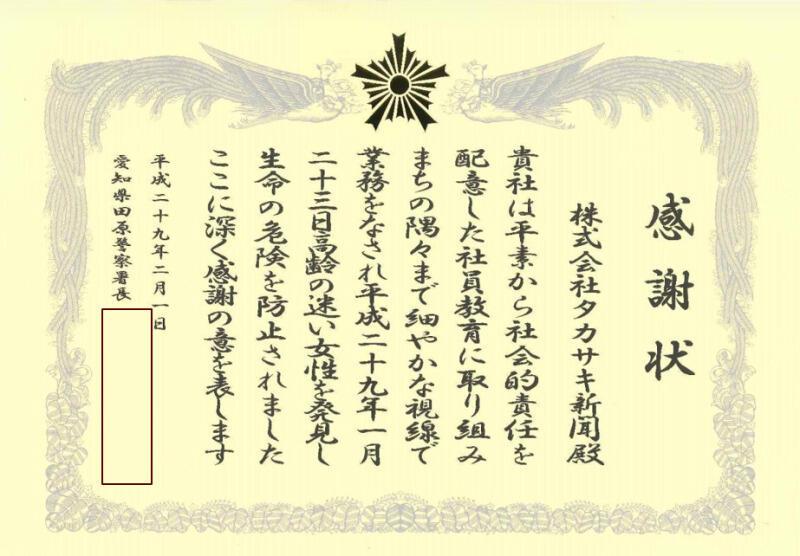 感謝状
株式会社タカサキ新聞殿
貴社は平素から社会的責任を
配意した社員教育に取り組み
まちの隅々まで細やかな視線で
業務をなされ平成二十九年一月
二十三日高齢の迷い女性を発見し
生命の危険を防止されました
ここに深く感謝の意を表します
平成二十九年二月一日
愛知県田原警察署長